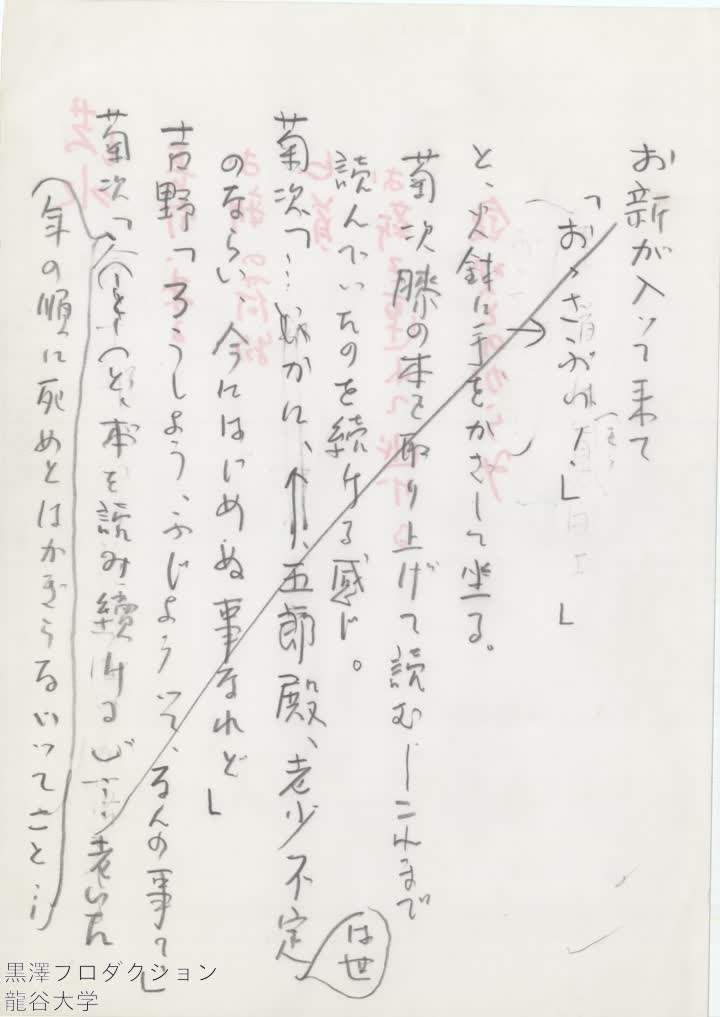 お新が入って来て
「おゝさぶい、」
と、火鉢に手をかざして坐る。
菊次膝の本を取り上げて読む―これまで
読んでいたのを続ける感じ。
菊次「… 五節殿、老少不定は世
のならい、今にはじめぬ事なれど」
吉野「ろうしよう、ふじようって、なんの事で」
菊次「 本を読み続ける 老いた
年の順に死めとはかぎらないってこと…
黒澤プロダクション
龍谷大学